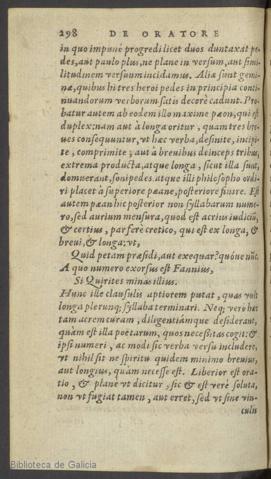 298 DE ORATORE
in quo impunè progredi licet duos duntaxat pe-
des, aut paulo plus, ne plane in versum, aut simi-
litudinem versuum incidamus. Aliæ sunt gemi-
næ, quibus hi tres heroi pedes in principia conti-
nuandorum verborum satis decorè cadunt. Pro-
batur autem ab eodem illo maxime pæon, qui est
duplex: nam aut à longa oritur, quam tres bre-
ues consequuntur, vt hæc verba, desinite, incipi-
te, comprimite; aut à breuibus deinceps tribus,
extrema producta, atque longa, sicut illa sunt,
domuerant, sonipedes. atque illi philosopho ordi-
ri placet à superiore pæane, posteriore finire. Est
autem pæan hic posterior non syllabarum nume-
ro, sed aurium mensura, quod est acrius iudiciũ,
& certius, par ferè cretico, qui est ex longa, &
breui, & longa: vt,
Quid petam præsidi, aut exequar? quóue nũc
A quo numero exorsus est Fannius,
Si Quirites minas illius.
Hunc ille clausulis aptiorem putat, quas vult
longa plerunq; syllaba terminari. Neq; verò hæc
tam acrem curam, diligentiámque desiderant,
quàm est illa poëtarum, quos necessitas cogit: &
ipsi numeri, ac modi sic verba versu includere,
vt nihil sit ne spiritu quidem minimo breuius,
aut longius, quàm necesse est. Liberior est ora-
tio, & plane vt dicitur, sic & est verè soluta,
non vt fugiat tamen, aut erret, sed vt sine vin-
culis
Biblioteca de Galicia